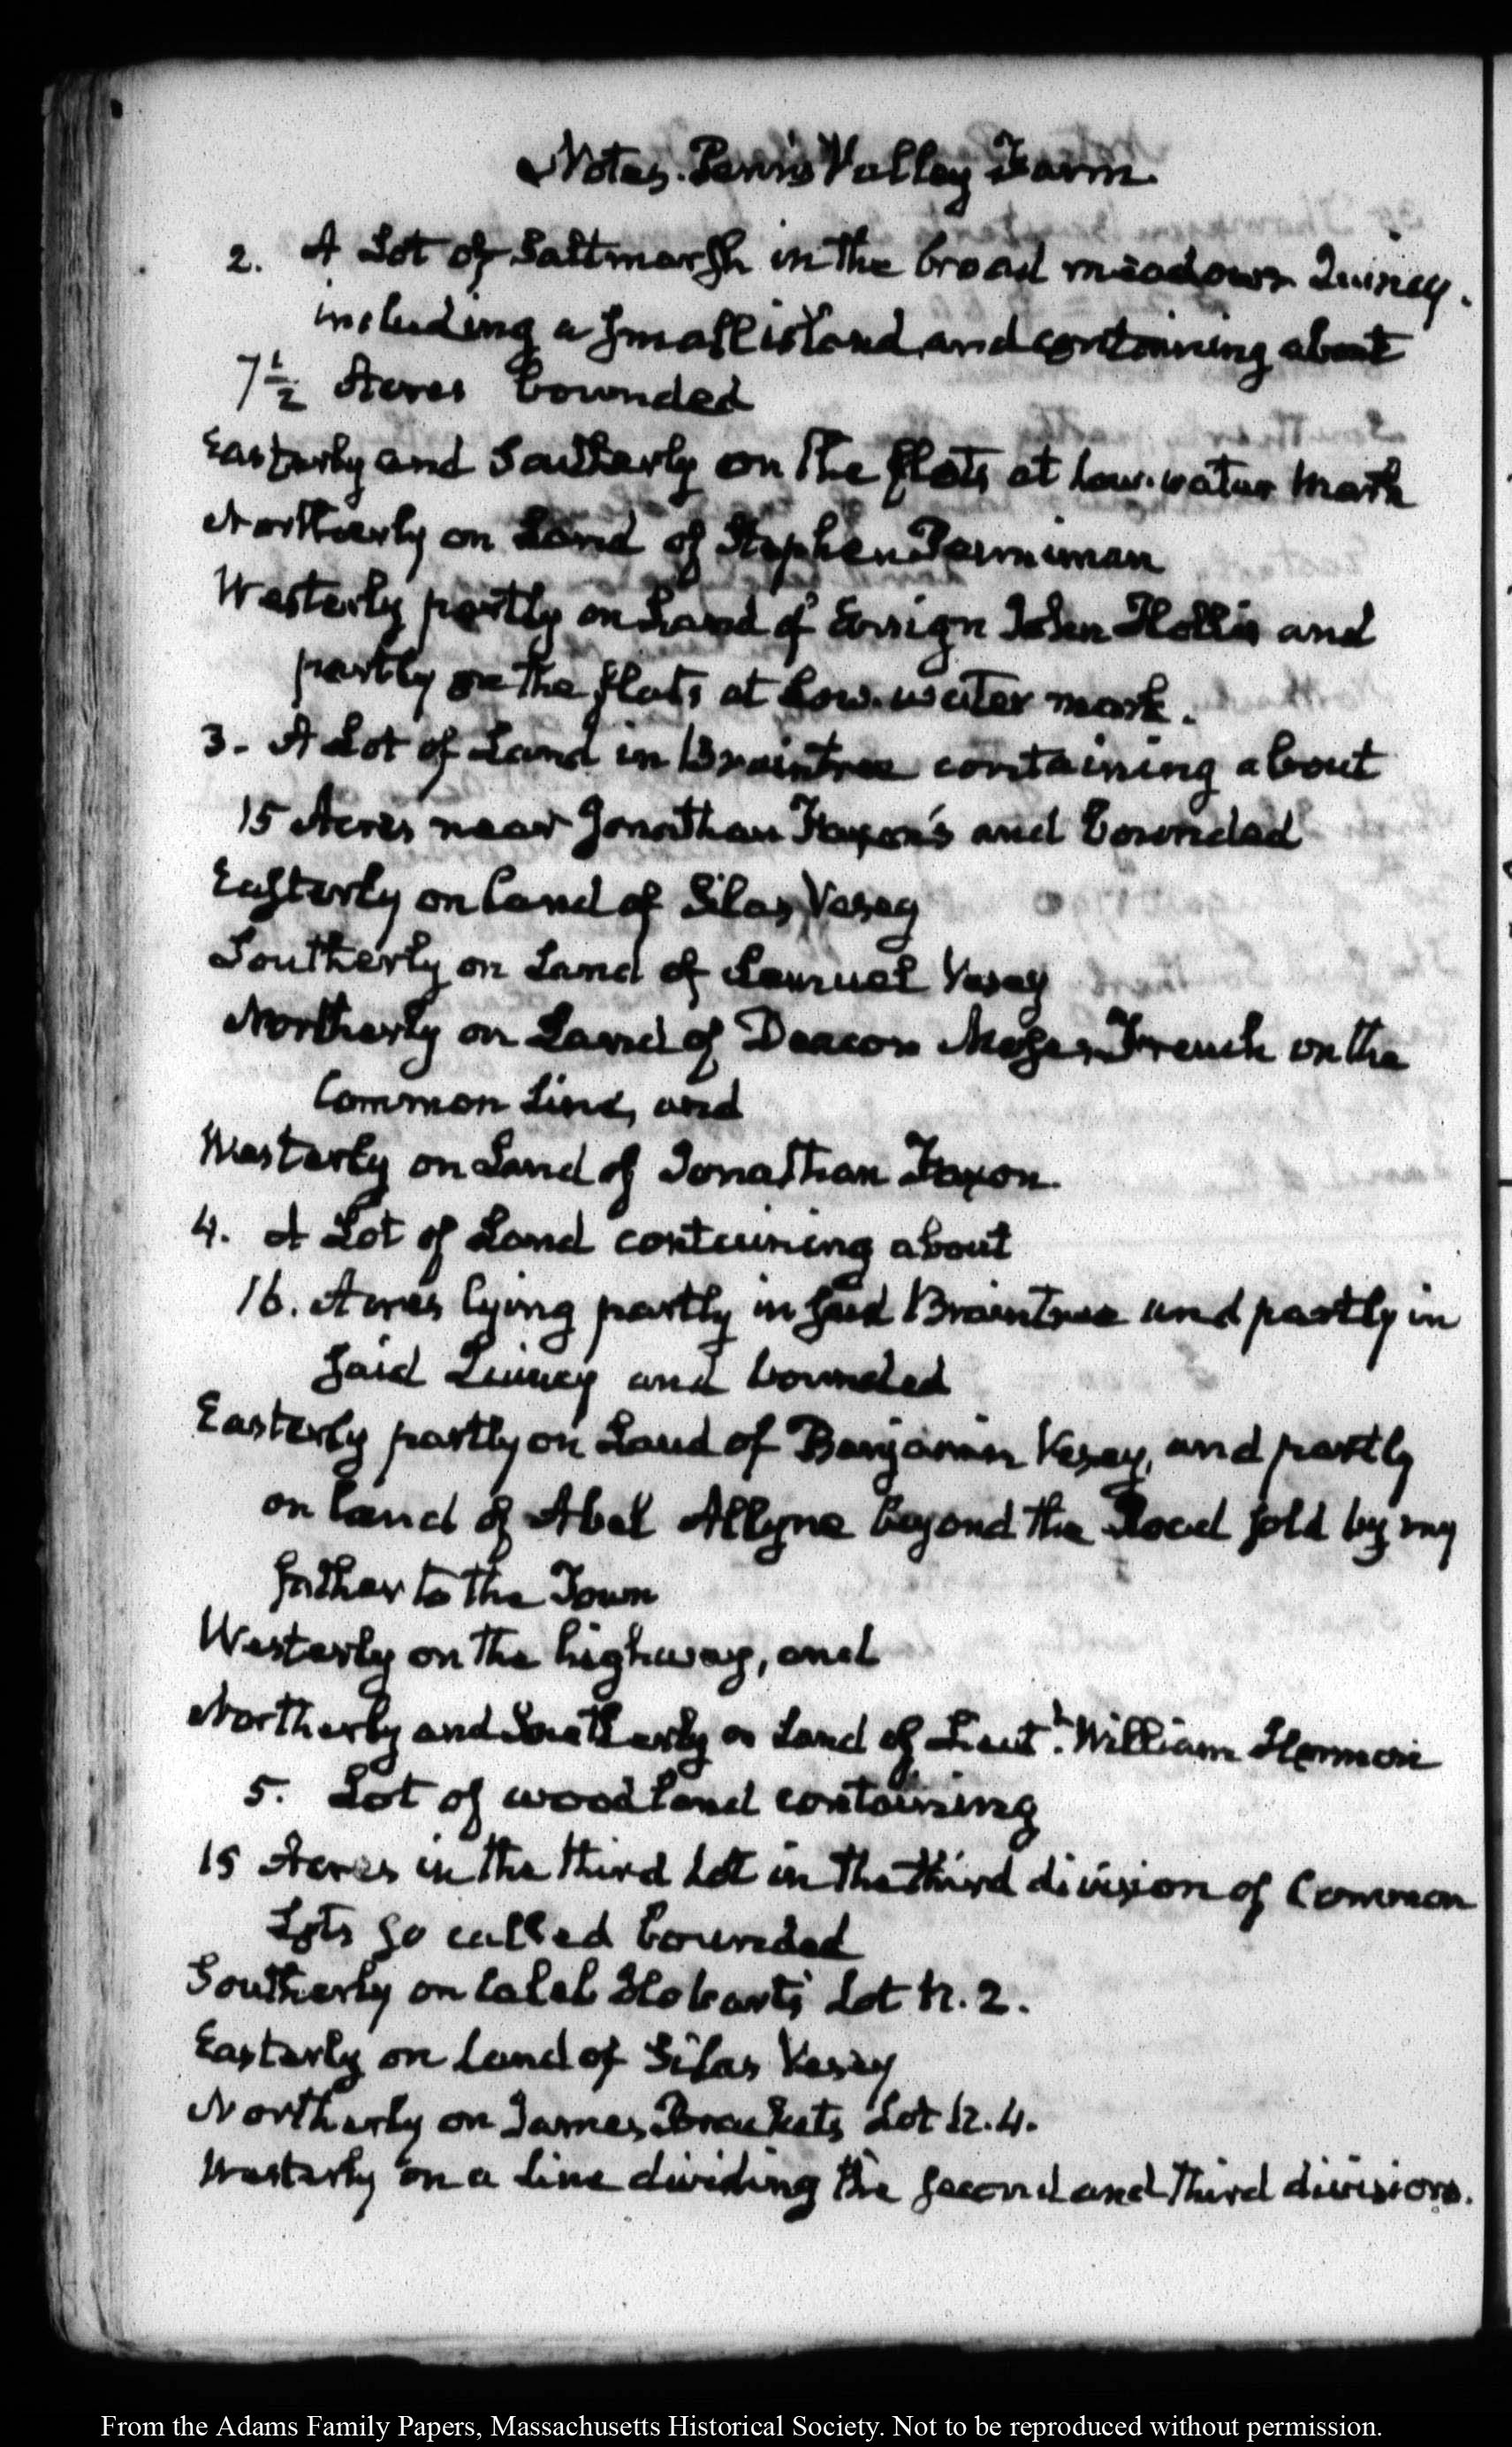 Notes. Penn's Valley Farm.
2. A Lot of Saltmarsh in the broad meadows Quincy.
including a small island, and containing about
7 1/2 Acres bounded
Easterly and Southerly on the flats at low-water mark
Northerly on Land of Stephen Penniman
Westerly partly on Land of Ensign John Hollis and
partly on the flats at low-water mark.
3. A Lot of Land in Braintree containing about
15 Acres near Jonathan Faxon's and bounded
Easterly on land of Silas Vesey
Southerly on Land of Samuel Vesey
Northerly on Land of Deacon Moses French on the
Common Line, and
Westerly on Land of Jonathan Faxon.
4. A Lot of Land containing about
16. Acres lying partly in said Braintree and partly in
said Quincy and bounded
Easterly partly on Land of Benjamin Vesey, and partly
on land of Abel Allyne beyond the Road sold by my
father to the Town
Westerly on the highway, and
Northerly and Southerly on Land of Lieut.t William
5. Lot of woodland containing
15 Acres in the third Lot in the third division of Common
Lots so called bounded
Southerly on Caleb Hobarts Lot N. 2.
Easterly on land of Silas Vesey
Northerly on James Bracketts Lot N. 4.
Westerly on a line dividing the second and third divisions.
From the Adams Family Papers, Massachusetts Historical Society. Not to be reproduced without permission.